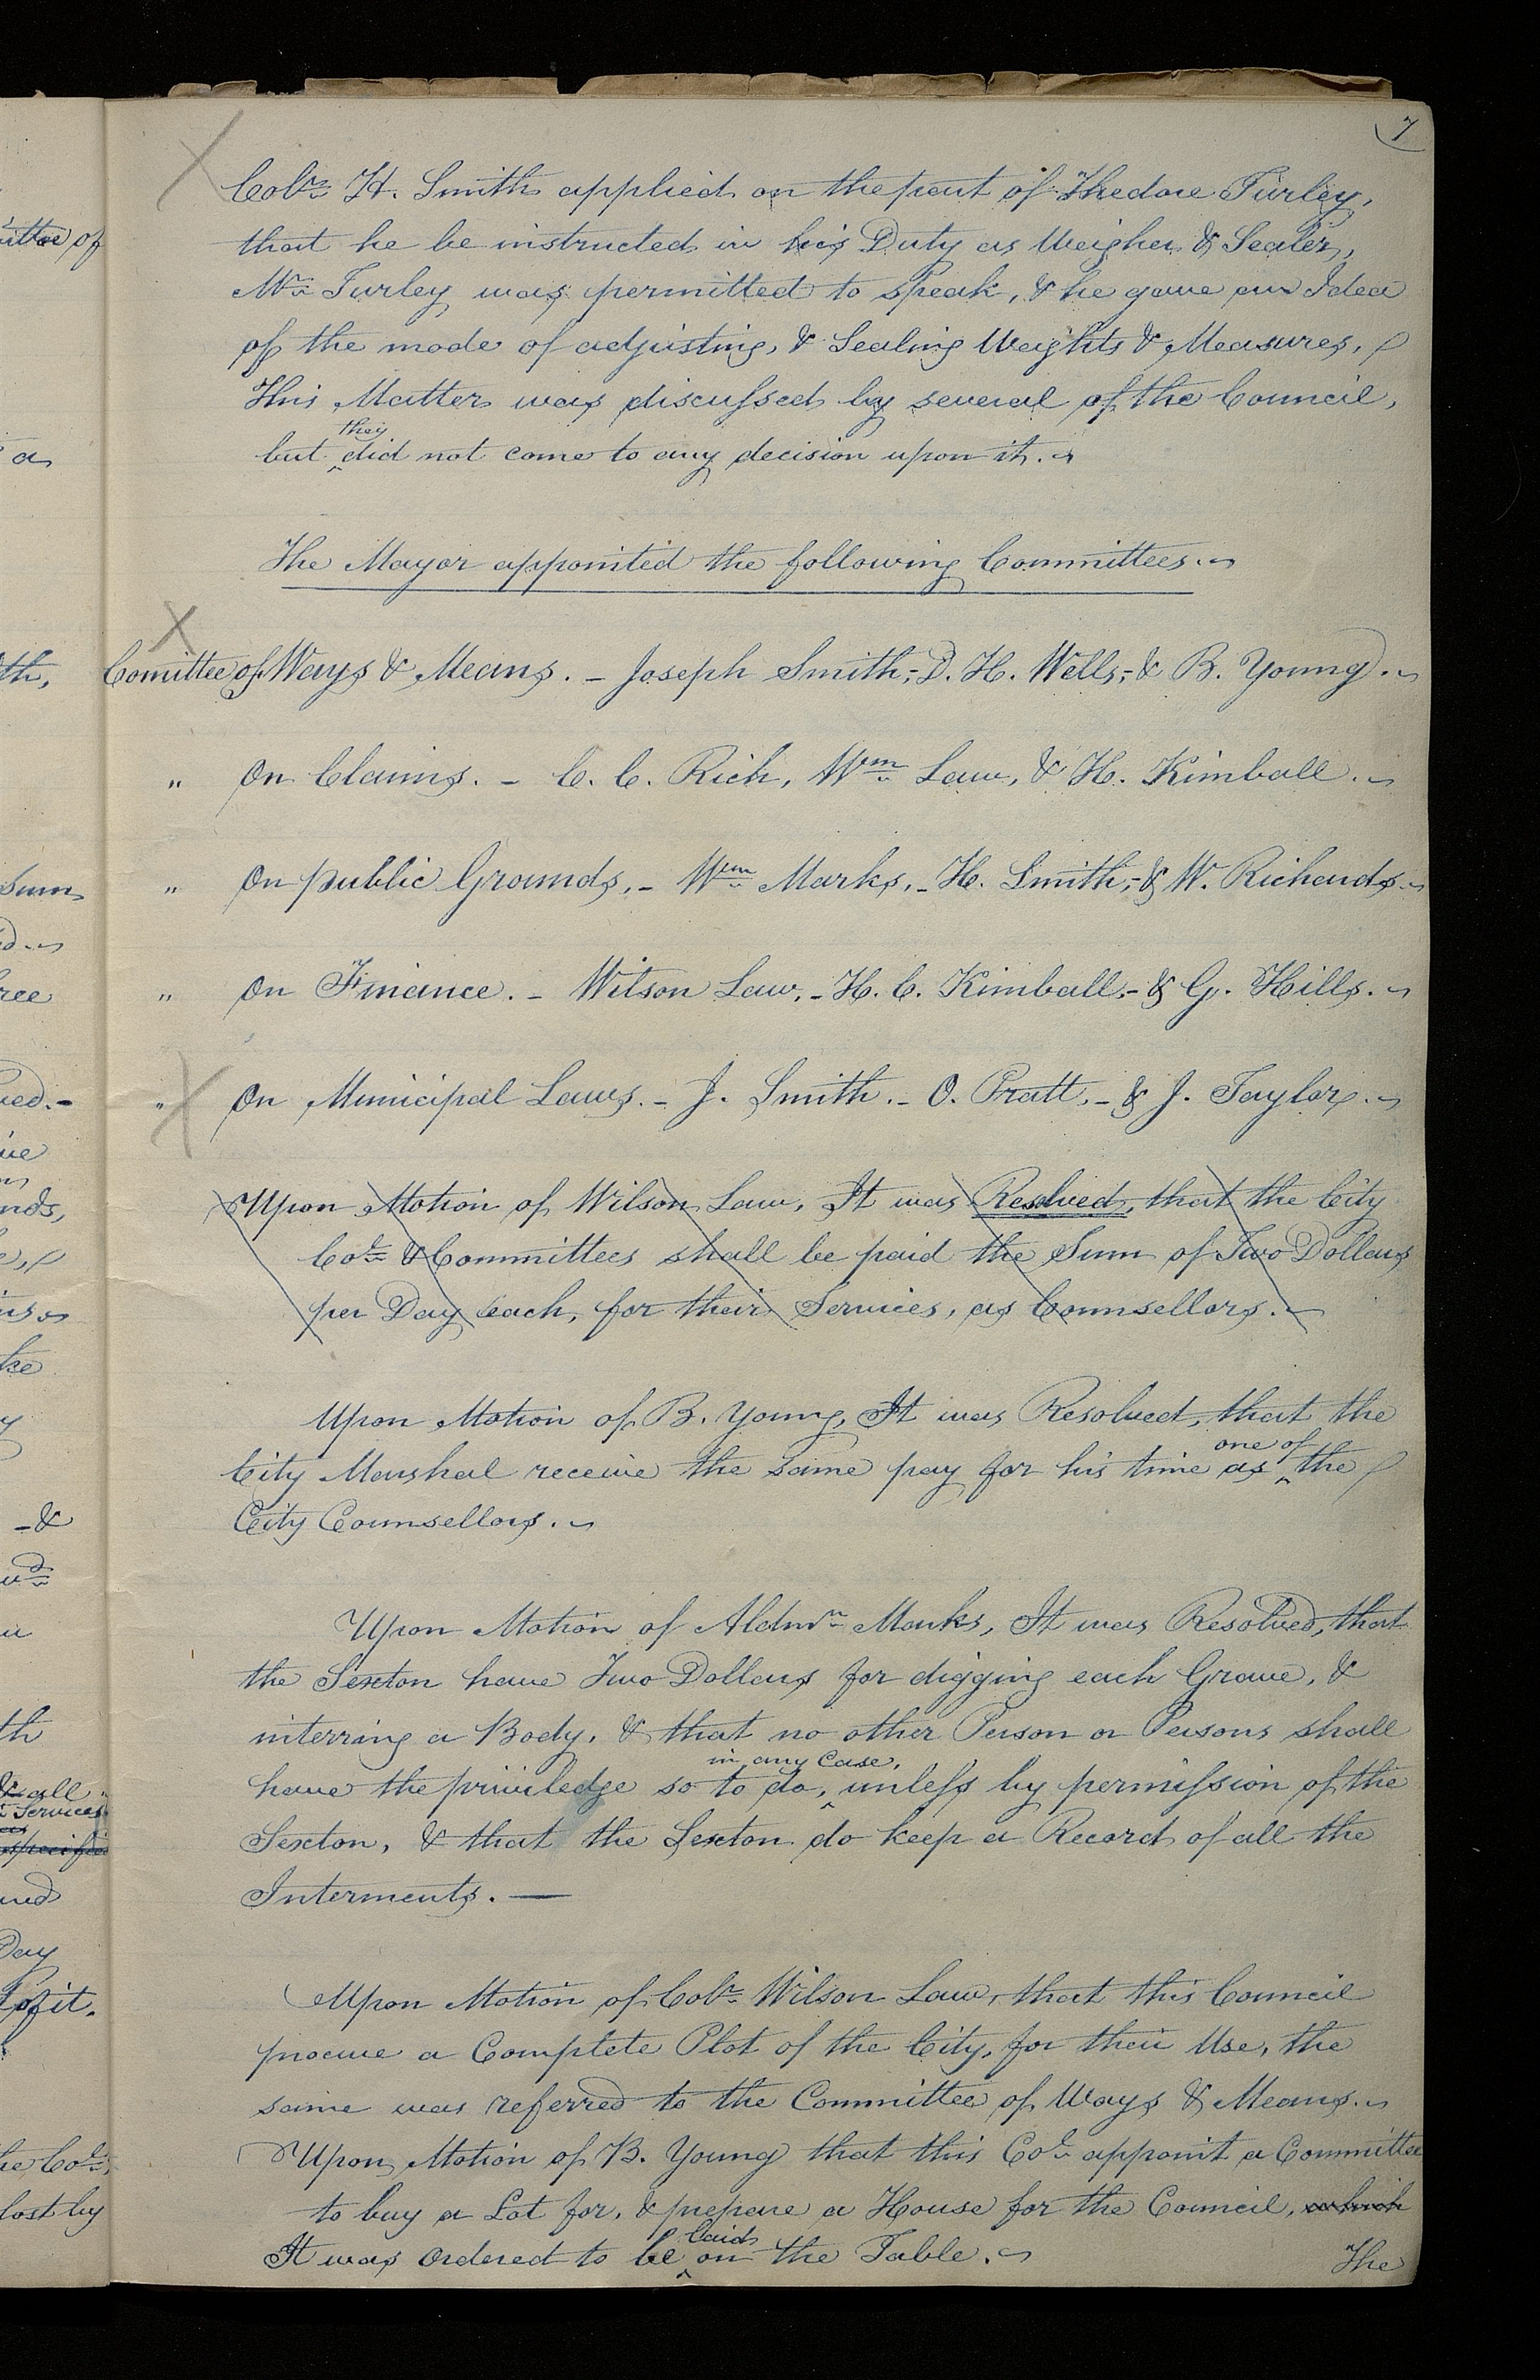 7
Colr. H. Smith applied on the part of Thedore Turley,
that he be instructed in his Duty as Weigher & Sealer,
Mr. Turley was permitted to speak, & he gave an Idea
of the mode of adjusting, & Sealing Weights & Measures,
This Matter was discussed by several of the Council,
but they did not come to any decision upon it.
The Mayor appointed the following Committees.
Comittee of Ways & Means. - Joseph Smith,- D. H. Wells,- & B. Young.
" On Claims. - C. C. Rich, Wm. Law, & H. Kimball.
" On public Grounds, - Wm. Marks, - H. Smith,- & W. Richards.
" On Finance. - Wilson Law, - H. C. Kimball,- & G. Hills.
" On Municipal Laws. - J. Smith. - O. Pratt, - & J. Taylor.
Upon Motion of Wilson Law, It was Resolved, that the City
Col. & Committees shall be paid the Sum of Two Dollars
per Day each, for their Services, as Counsellors.
Upon Motion of B. Young, It was Resolved, that the
City Marshal receive the same pay for his time as one of the
City Counsellors.
Upon Motion of Aldmn. Marks, It was Resolved, that
the Sexton have Two Dollars for digging each Grave, &
interring a Body, & that no other Person or Persons shall
have the priviledge so to do, in any Case, unless by permission of the
Sexton, & that the Sexton do keep a Record of all the
Interments. —
Upon Motion of Colr. Wilson Law, that this Council
procure a Complete Plot of the City, for their Use, the
same was referred to the Committee of Ways & Means.
Upon Motion of B. Young that this Col. appoint a Committee
to buy a Lot for, & prepare a House for the Council, which
It was Ordered to be laid on the Table.
The